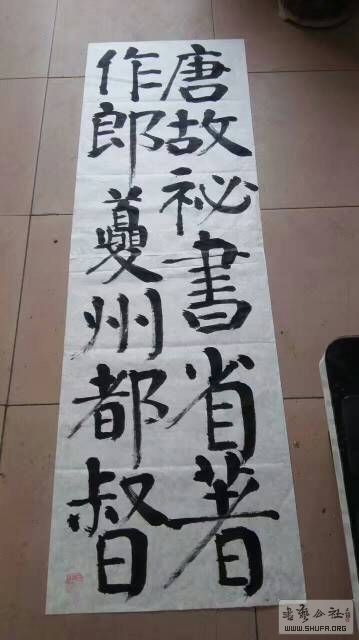 唐故祕書省著
作郎夔州都督
书艺公社
WWW.SHUFA.ORG